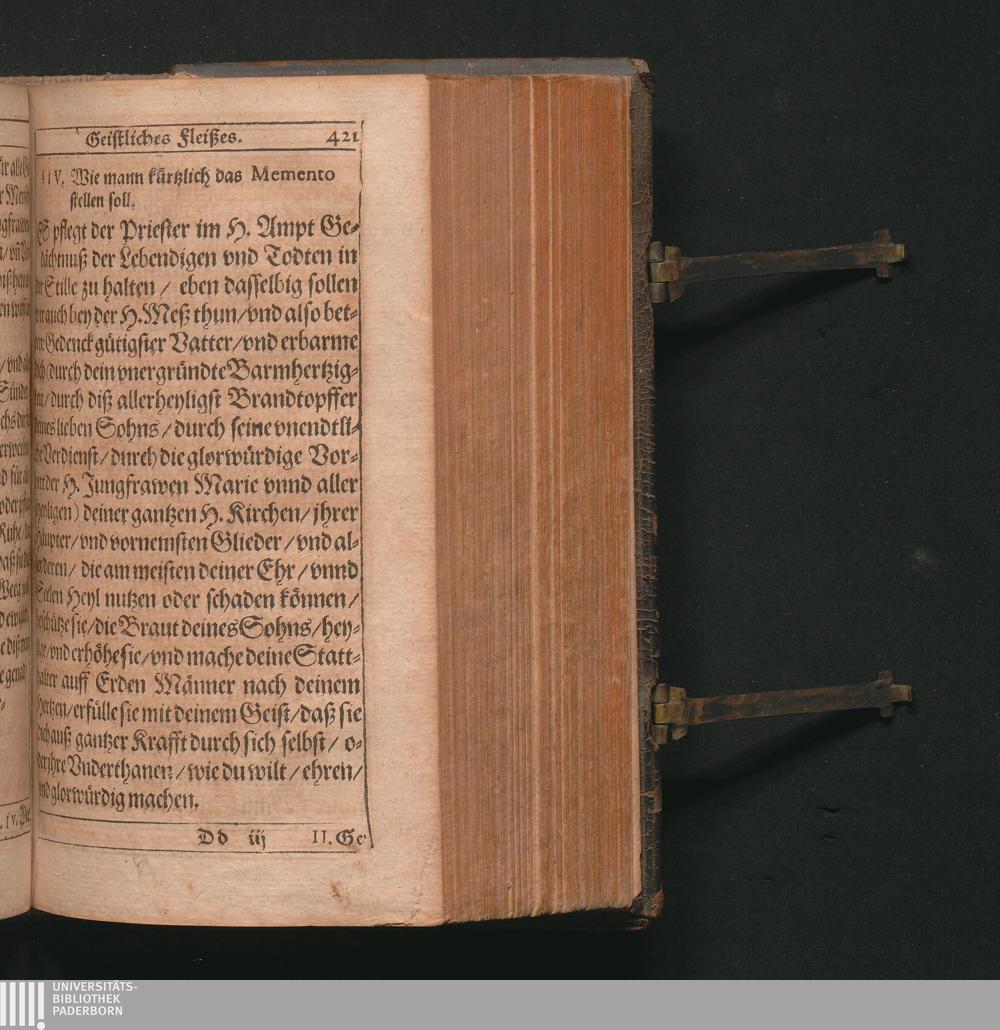 Geistliches Fleißes. 421
IV. Wie mann kürtzlich das Memento
stellen soll.
ES pflegt der Priester im H. Ampt Ge-
dächtnuß der Lebendigen vnd Todten in
der Stille zu halten / eben dasselbig sollen
wir auch bey der H. Meß thun / vnd also bet-
ten: Gedenck gütigster Vatter / vnd erbarme
dich (durch dein vnergründte Barmhertzig-
keit / durch diß allerheyligst Brandtopffer
deines lieben Sohns / durch seine vnendtli-
che Verdienst / durch die glorwürdige Vor-
bitt der H. Jungfrawen Marie vnnd aller
Heyligen) deiner gantzen H. Kirchen / jhrer
Häupter / vnd vornemsten Glieder / vnd al-
ler deren / die am meisten deiner Ehr / vnnd
Seelen Heyl nutzen oder schaden können /
beschütze sie / die Braut deines Sohns / hey-
lige / vnd erhöhe sie / vnd mache deine Statt-
halter auff Erden Männer nach deinem
Hertzen / erfülle sie mit deinem Geist / daß sie
dich auß gantzer Krafft durch sich selbst / o-
der ihre Vnderthanen / wie du wilt / ehren /
vnd glorwürdig machen.
Dd iij II. Ge-
UNIVERSITÄTS-
BIBLIOTHEK
PADERBORN